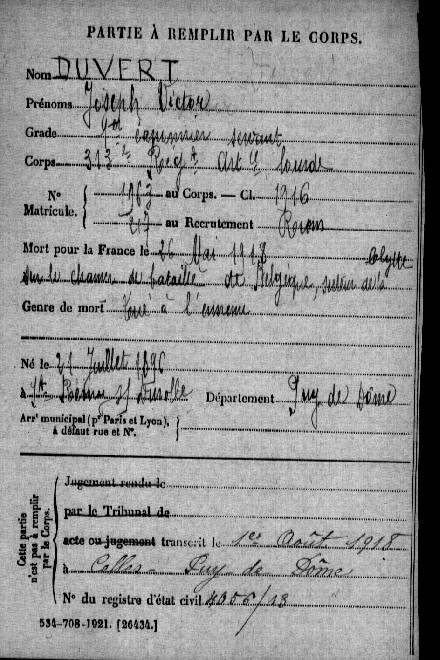 PARTIE À REMPLIR PAR LE CORPS.
Nom DUVERT
Prénoms Joseph Victor
Grade 2d canonnier servant
Corps 313e Regt Artie lourde
N° Matricule. 1963 au Corps. — Cl. 1916
217 au Recrutement Riom
Mort pour la France le 26 Mai 1918
sur le champ de bataille de Belgique, secteur de la Clytte
Genre de mort Tué à l'ennemi
Né le 21 Juillet 1896
à St Rémy s/ Durolle Département Puy de Dôme
Arrt municipal (pr Paris et Lyon),
à défaut rue et N°.
Cette partie n'est pas à remplir par le Corps.
Jugement rendu le
par le Tribunal de
acte ou jugement transcrit le 1er Août 1918
à Celles - Puy de Dôme
N° du registre d'état civil 4056/13
534-708-1921. [26434.]